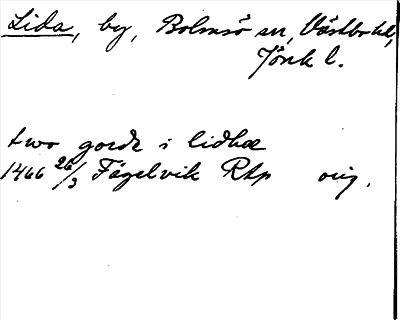 Lida, by, Bolmsö sn, Västbo hd,
Jönk l.
two gorde i lidhæ
1466 26/3 Fågelvik Rtp orig.